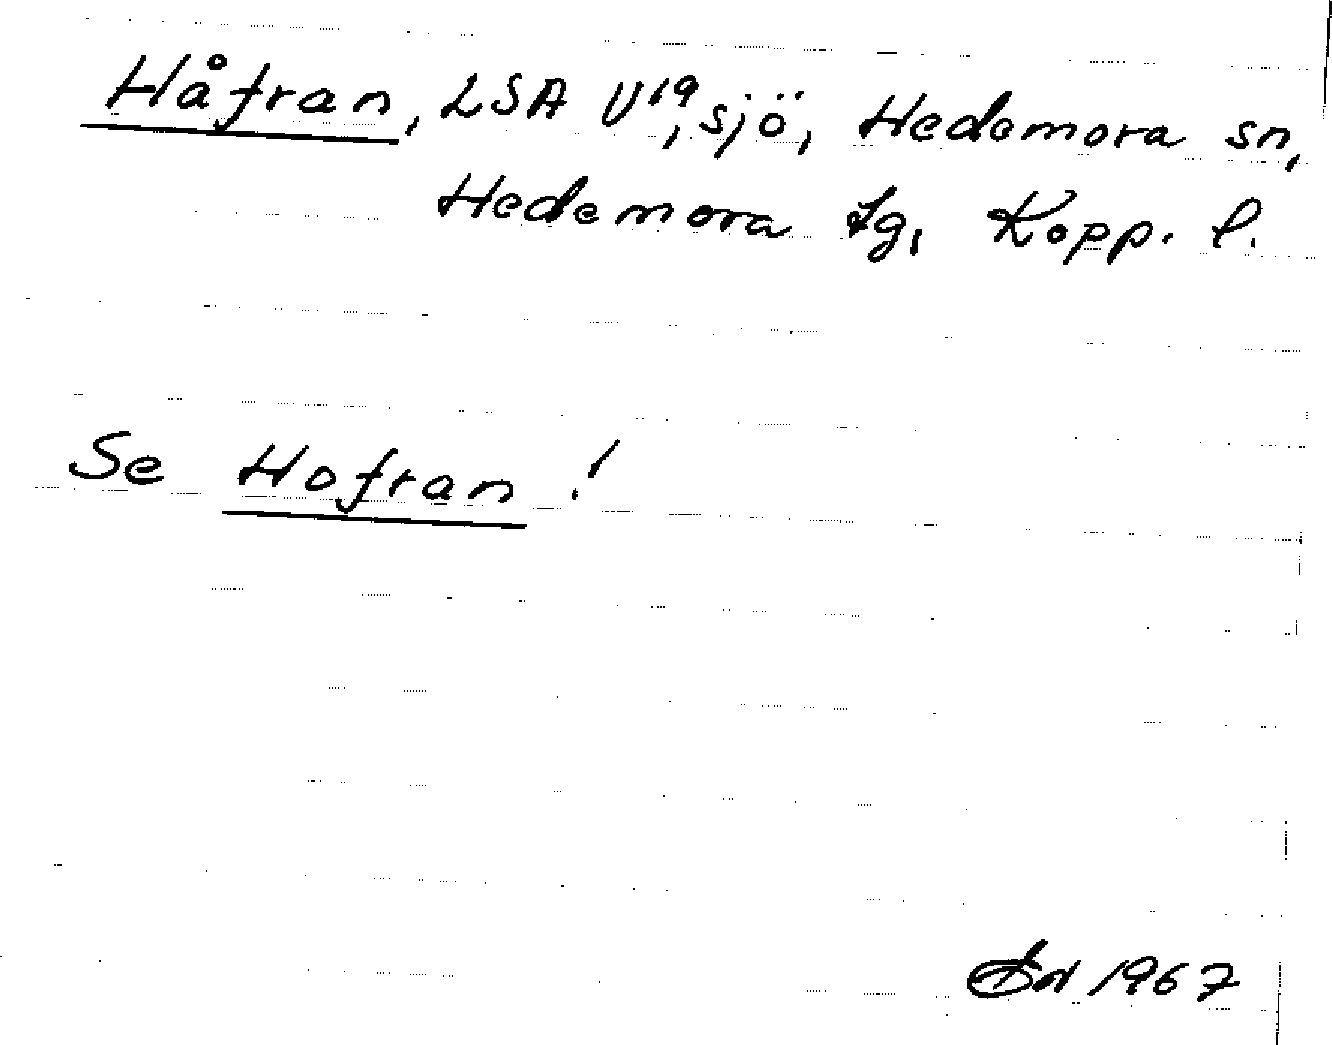 Håfran, LSA U¹⁹, sjö, Hedemora sn,
Hedemora tg, Kopp. l.
Se Hofran!
1967